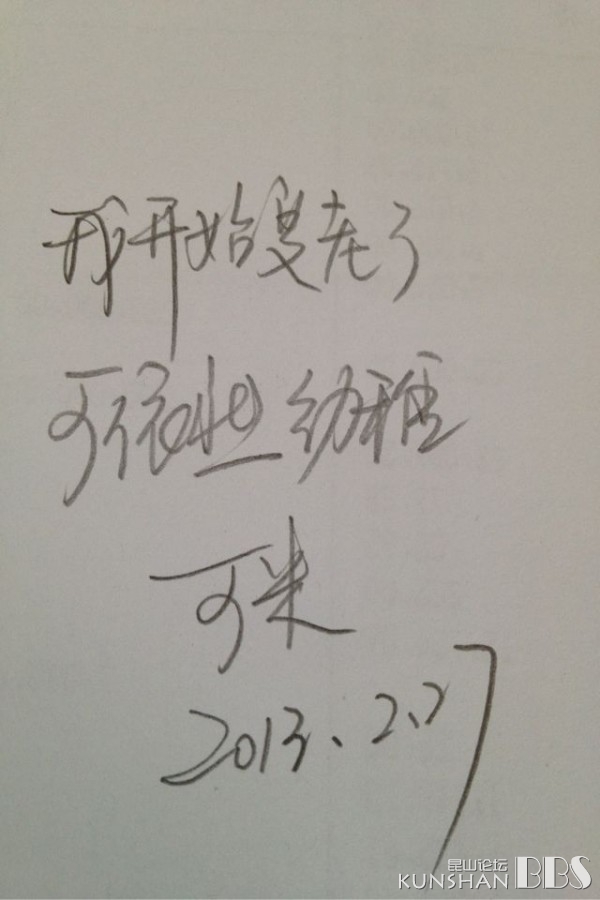 我开始变老了
可依旧幼稚
可米
2013.2.27
昆山论坛
KUNSHAN BBS